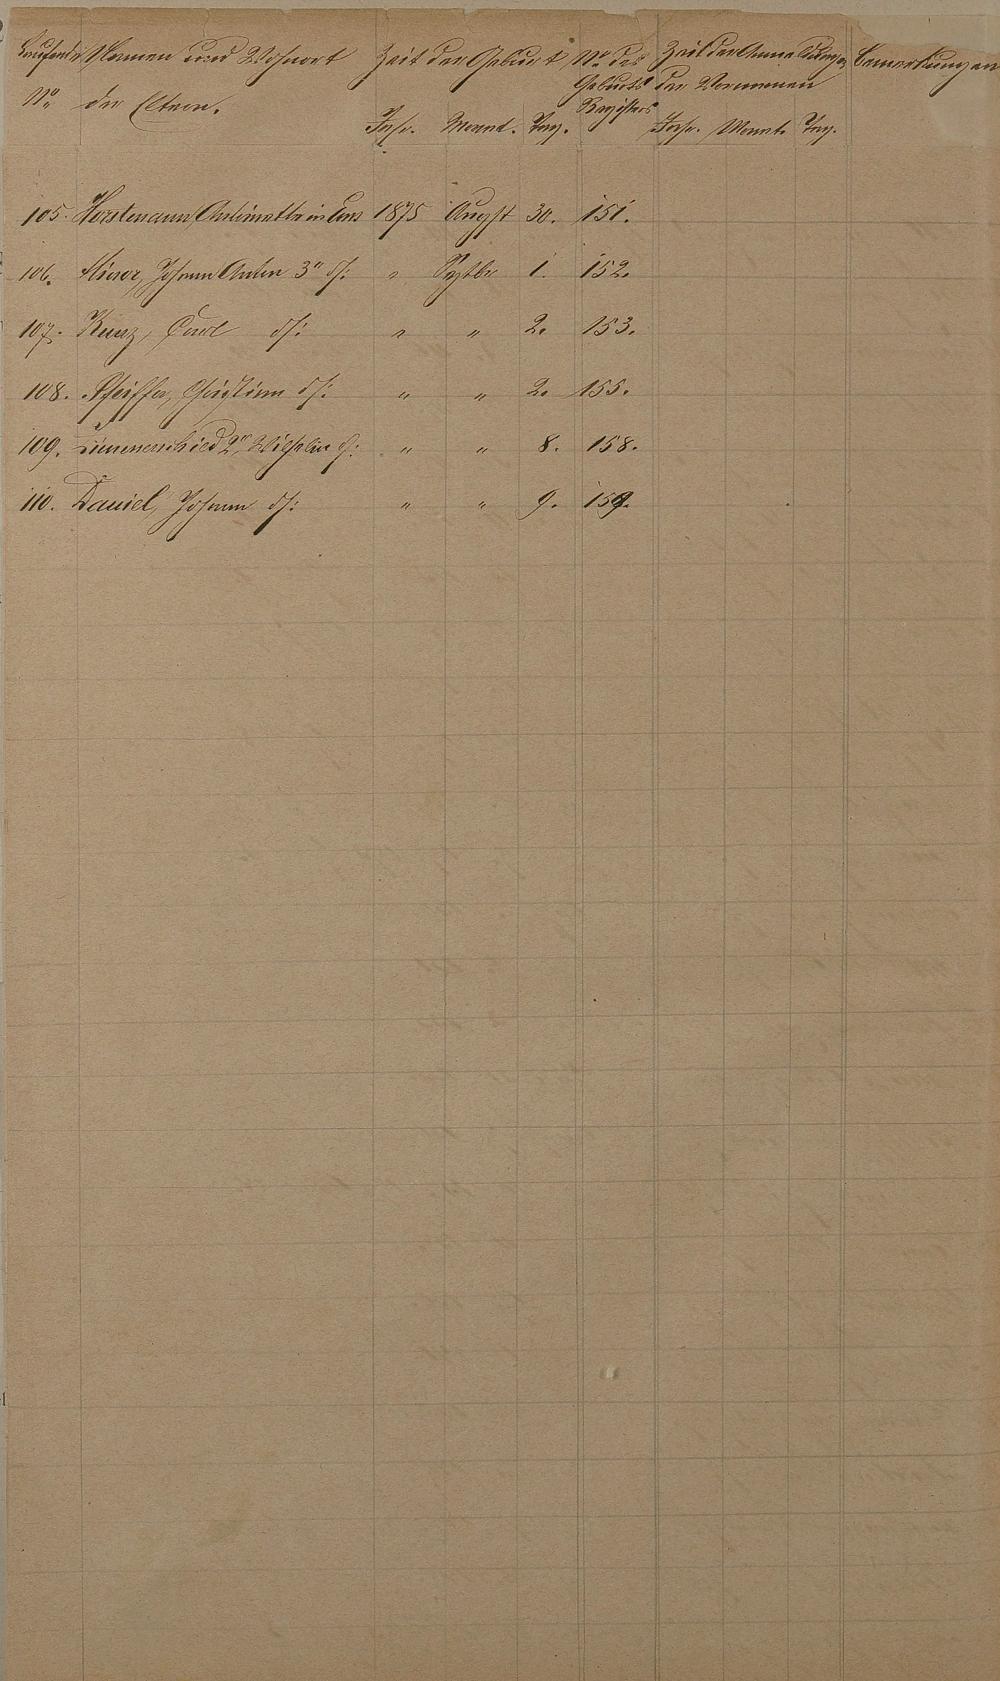 Laufende Namen und Wohnort Zeit der Geburt No des Zeit der Anmeldung Bemerkungen
No der Eltern. Geburts der Vornamen
Registers
Jahr. Monat. Tag. Jahr. Monat. Tag.
105. Horstmann, in Ems 1875 August 30. 151.
106. Johann Anton 3r d/: " Septbr 1. 152.
107. Kunz, Carl d/: " " 2. 153.
108. Pfeiffer, Christian d/: " " 2. 155.
109. Zimmerschied 2r, Wilhelm d/: " " 8. 158.
110. Daniel, Johann d/: " " 9. 159.